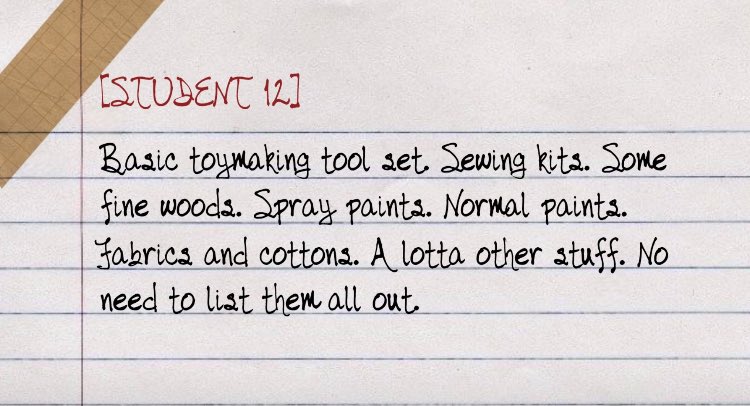 [STUDENT 12]
Basic toymaking tool set. Sewing kits. Some
fine woods. Spray paints. Normal paints.
Fabrics and cottons. A lotta other stuff. No
need to list them all out.